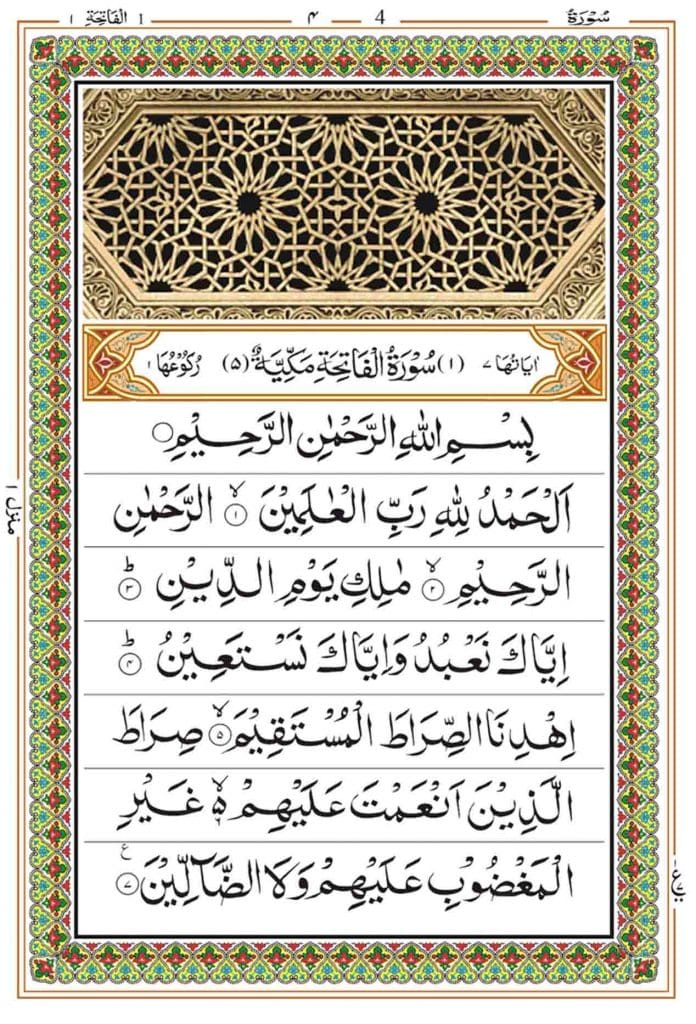 سُوْرَةٌ 4 ۴ 1 اَلْفَاتِحَةِ ۱
اٰيَاتُهَا ۷ (۱) سُوْرَةُ الْفَاتِحَةِ مَكِّيَّةٌ (۵) رُكُوْعُهَا ۱
بِسْمِ اللهِ الرَّحْمٰنِ الرَّحِيْمِ ۝
اَلْحَمْدُ لِلّٰهِ رَبِّ الْعٰلَمِيْنَ ۙ۝۱ الرَّحْمٰنِ
الرَّحِيْمِ ۙ۝۲ مٰلِكِ يَوْمِ الدِّيْنِ ؕ۝۳
اِيَّاكَ نَعْبُدُ وَاِيَّاكَ نَسْتَعِيْنُ ؕ۝۴
اِهْدِنَا الصِّرَاطَ الْمُسْتَقِيْمَ ۙ۝۵ صِرَاطَ
الَّذِيْنَ اَنْعَمْتَ عَلَيْهِمْ ۙ۬ۦ غَيْرِ
الْمَغْضُوْبِ عَلَيْهِمْ وَلَا الضَّآلِّيْنَ ۝۷ ع
منزل ۱